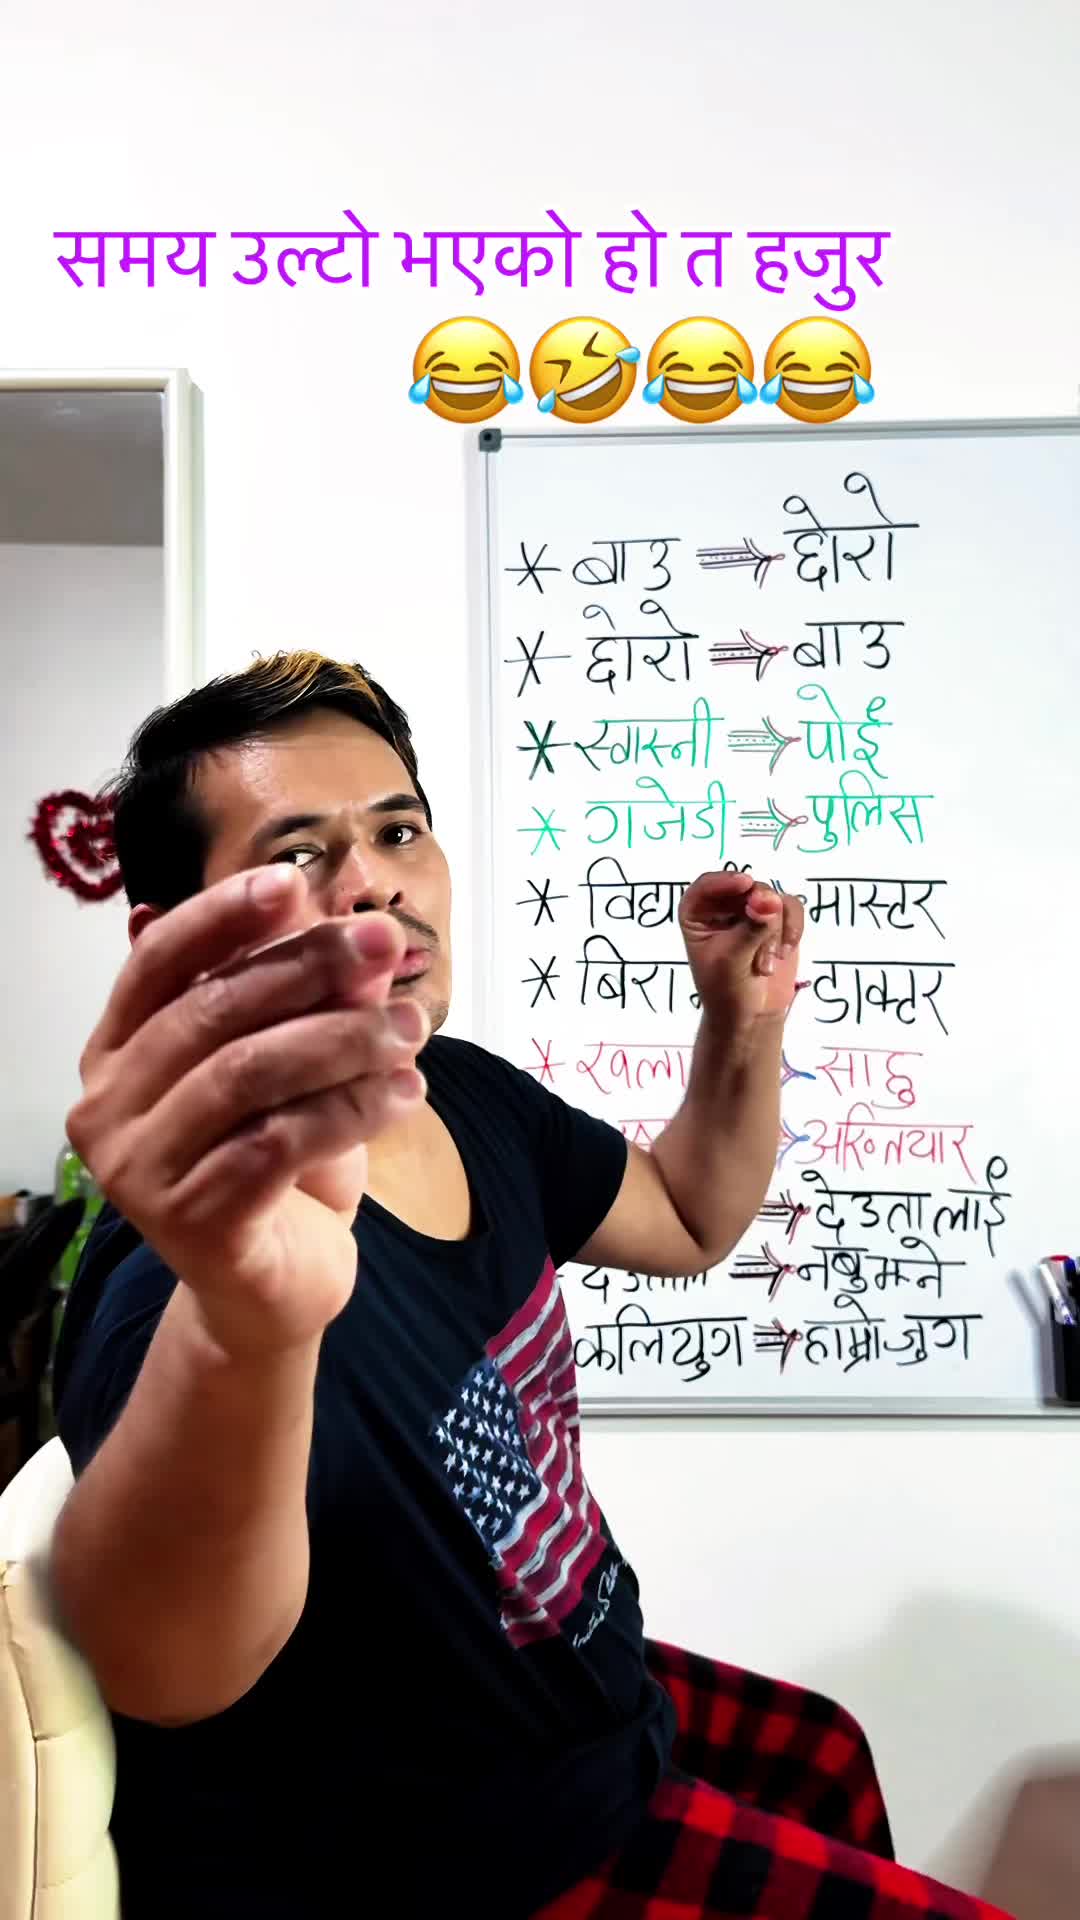 समय उल्टो भएको हो त हजुर
😂🤣😂😂
* बाउ ⇒ छोरो
* छोरो ⇒ बाउ
* स्वास्नी ⇒ पोई
* गजेडी ⇒ पुलिस
* मास्टर
* डाक्टर
* साहु
अख्तियार
⇒ देउतालाई
⇒ नबुझ्ने
कलियुग ⇒ हाम्रोजुग